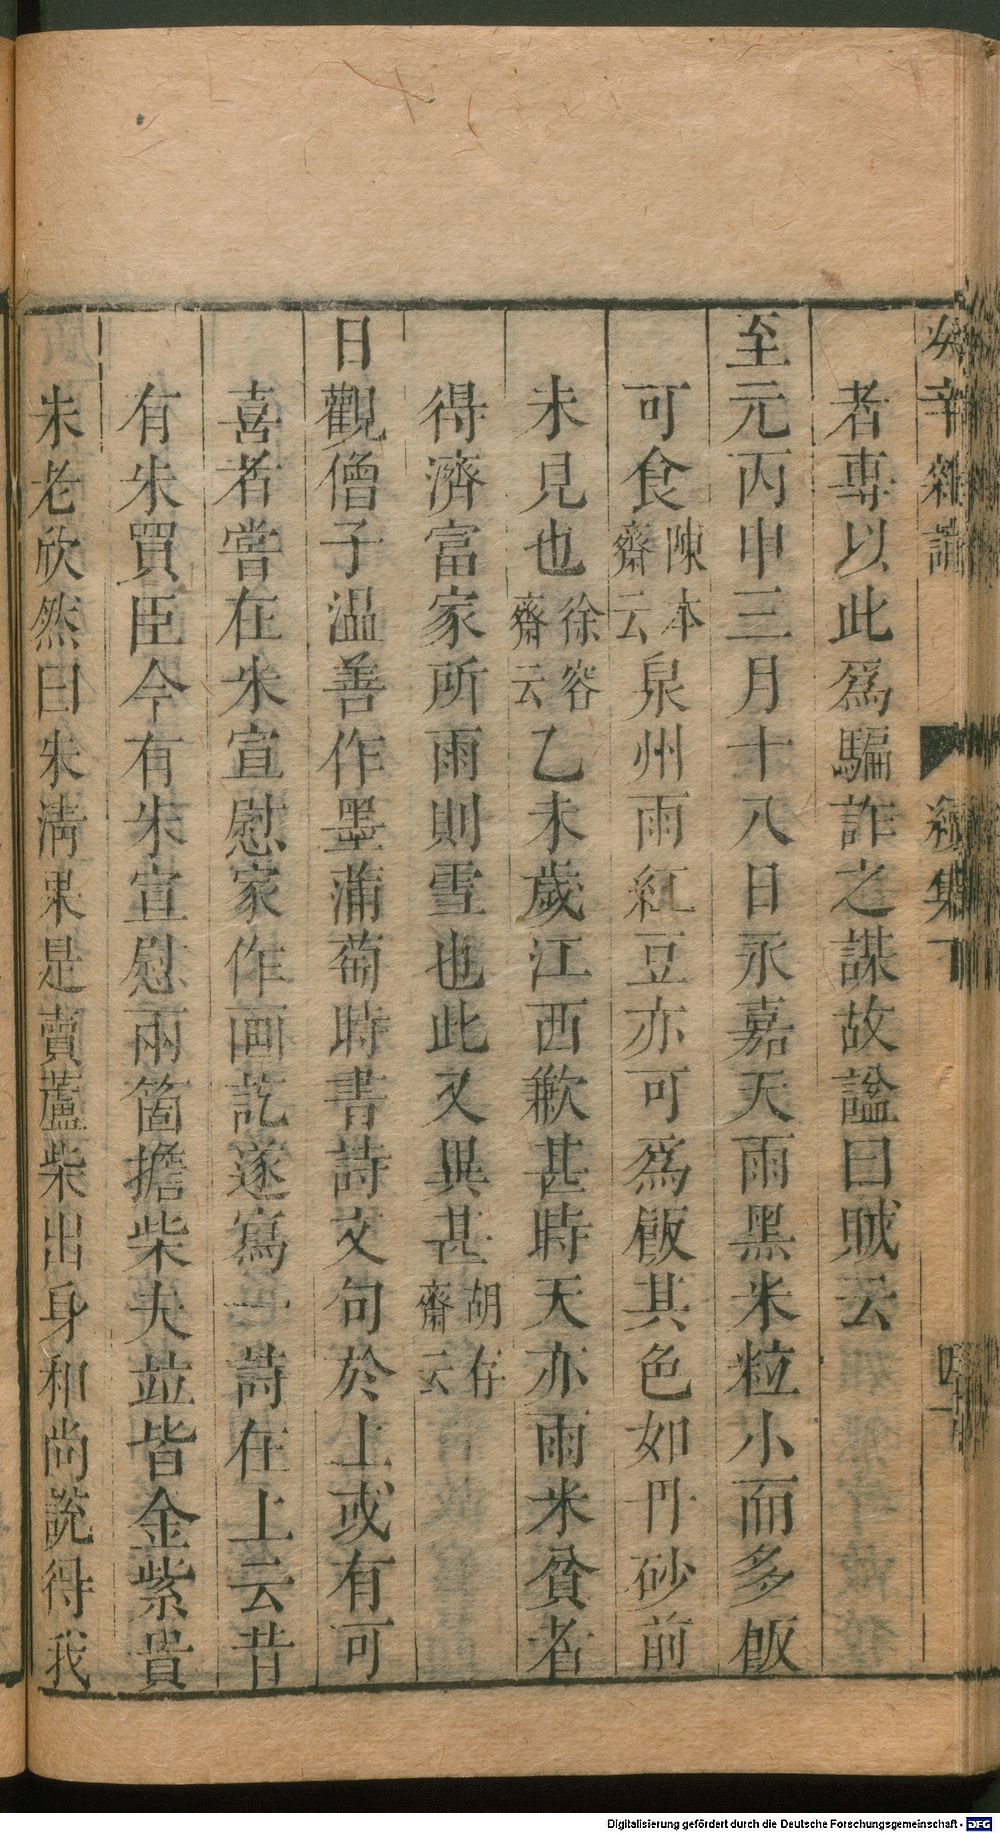 癸辛雜識 續集下 四十
者專以此爲騙詐之謀故諡曰賊云
至元丙申三月十八日永嘉天雨黑米粒小而多飯
可食陳本齋云泉州雨紅豆亦可爲飯其色如丹砂前
未見也徐容齋云乙未歲江西歉甚時天亦雨米貧者
得濟富家所雨則雪也此又異甚胡存齋云
日觀僧子温善作墨蒲萄時書詩文句於上或有可
喜者嘗在朱宣慰家作画訖遂寫一詩在上云昔
有朱買臣今有朱宣慰兩箇擔柴夫竝皆金紫貴
朱老欣然曰朱清果是賣蘆柴出身和尚說得我
Digitalisierung gefördert durch die Deutsche Forschungsgemeinschaft - DFG